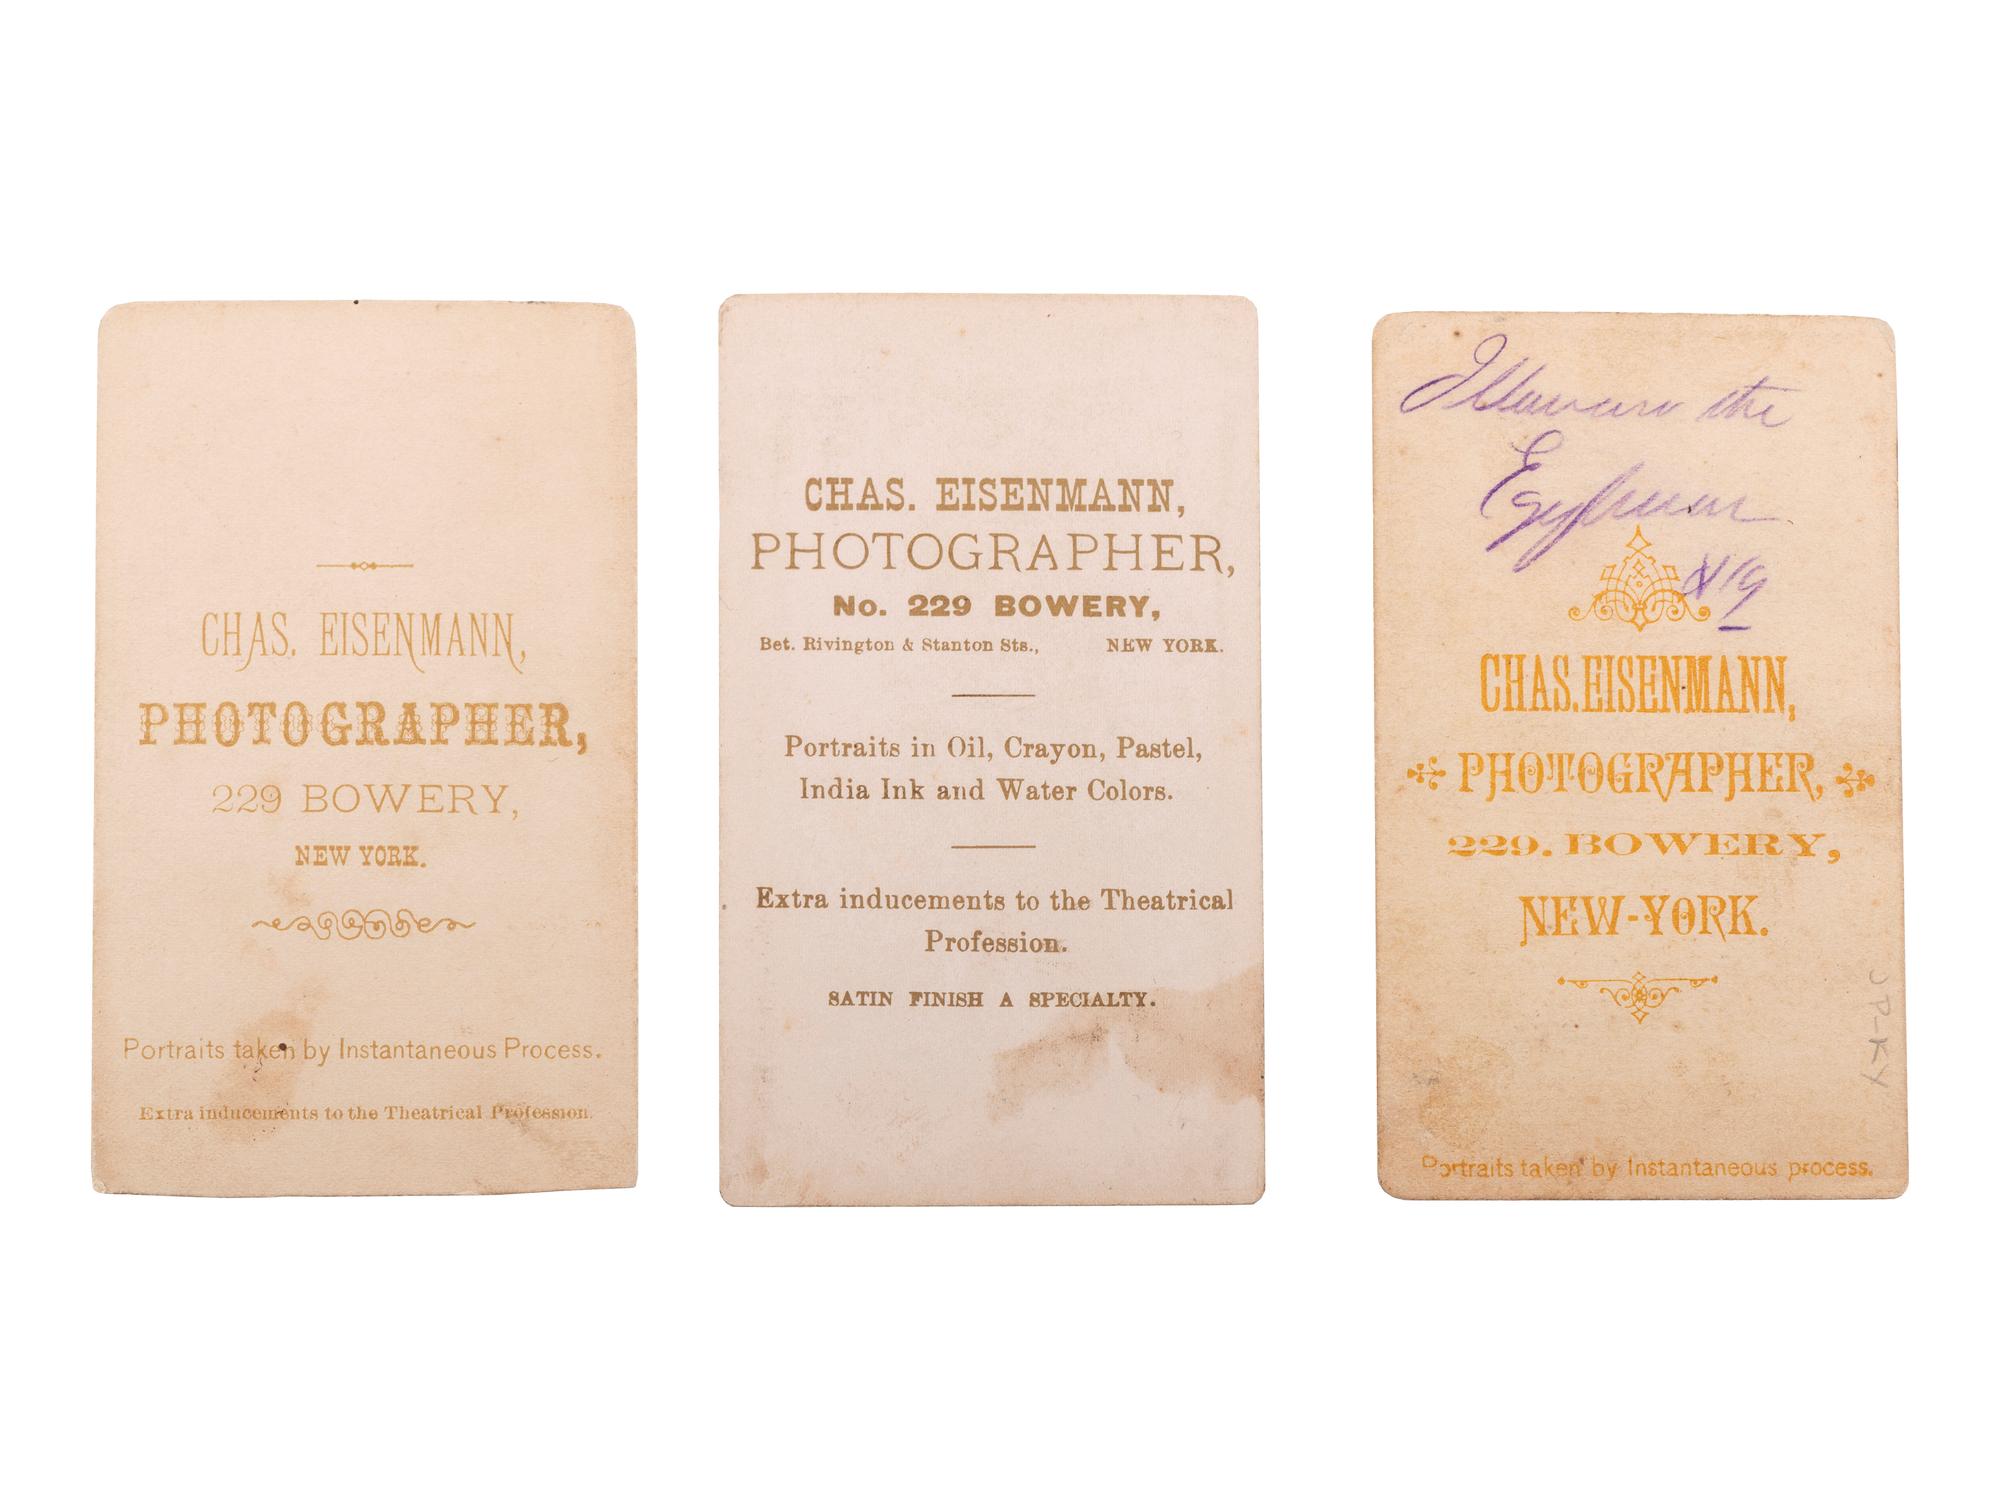 CHAS. EISENMANN,
PHOTOGRAPHER,
229 BOWERY,
NEW YORK.
Portraits taken by Instantaneous Process.
Extra inducements to the Theatrical Profession.
CHAS. EISENMANN,
PHOTOGRAPHER,
No. 229 BOWERY,
Bet. Rivington & Stanton Sts., NEW YORK.
Portraits in Oil, Crayon, Pastel,
India Ink and Water Colors.
Extra inducements to the Theatrical
Profession.
SATIN FINISH A SPECIALTY.
the
CHAS. EISENMANN,
PHOTOGRAPHER,
229. BOWERY,
NEW-YORK.
Portraits taken by Instantaneous process.